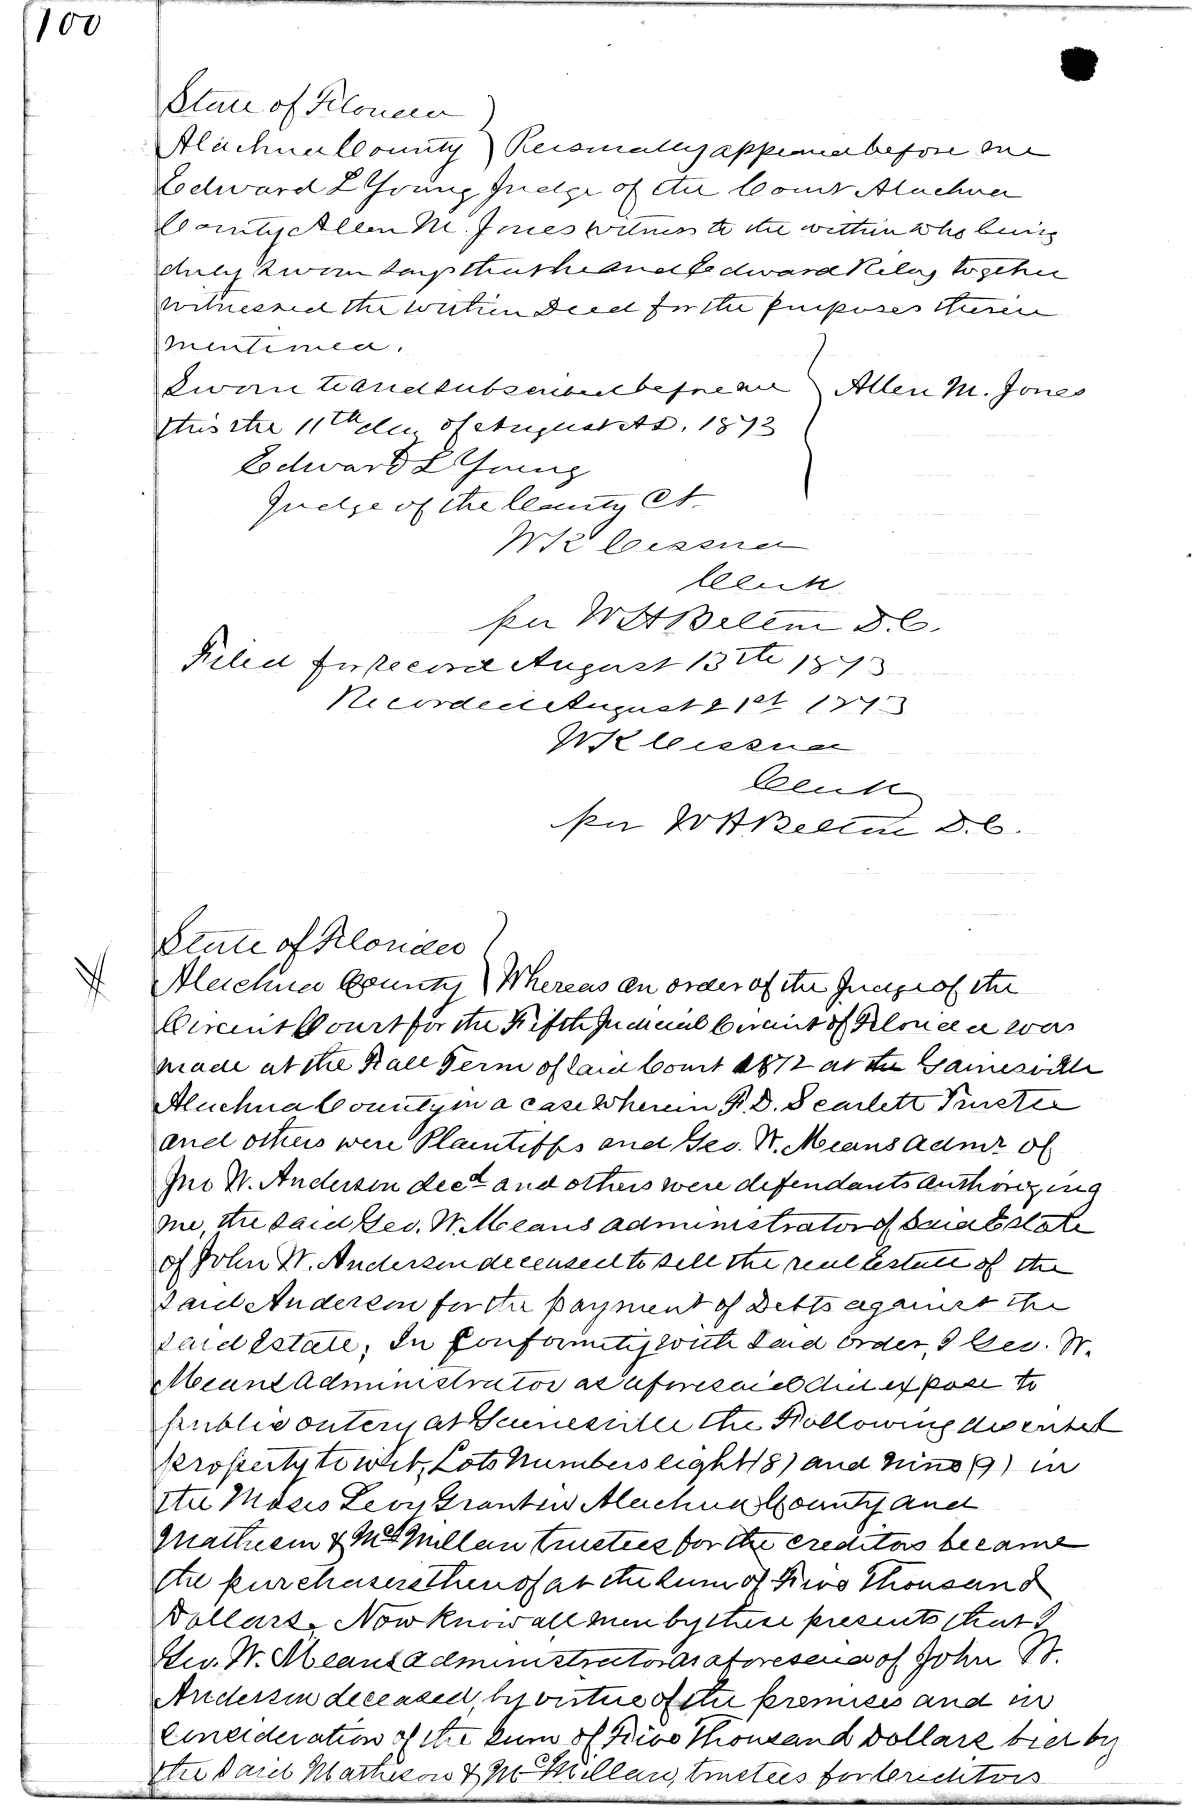 100
State of Florida
Alachua County } Personally appeared before me
Edward L Young Judge of the Court Alachua
County Allen M. Jones witness to the within who being
duly sworn says that he and Edward Riley together
witnessed the within Deed for the purposes therein
mentioned.
Sworn to and subscribed before me } Allen M. Jones
this the 11th day of August AD. 1873
Edward L Young
Judge of the County Ct.
W K Cessna
Clerk
per W H Belton D.C.
Filed for record August 13th 1873
Recorded August 21st 1873
W K Cessna
Clerk
per W H Belton D.C.
State of Florida
Alachua County } Whereas an order of the Judge of the
Circuit Court for the Fifth Judicial Circuit of Florida was
made at the Fall Term of said Court 1872 at the Gainesville
Alachua County in a case wherein F. D. Scarlett Trustee
and others were Plaintiffs and Geo. W. Means admr of
Jno W. Anderson decd and others were defendants authorizing
me, the said Geo. W. Means administrator of said Estate
of John W. Anderson deceased to sell the real Estate of the
said Anderson for the payment of Debts against the
said Estate; In Conformity with said order, I Geo. W.
Means administrator as aforesaid did expose to
public outcry at Gainesville the Following described
property to wit; Lots Numbers eight (8) and nine (9) in
the Moses Levy Grant in Alachua County and
Matheson & McMillan trustees for the creditors became
the purchasers thereof at the sum of Five Thousand
Dollars. Now know all men by these presents that I
Geo. W. Means administrator as aforesaid of John W.
Anderson deceased, by virtue of the premises and in
Consideration of the sum of Five Thousand Dollars bid by
the said Matheson & McMillan, trustees for Creditors